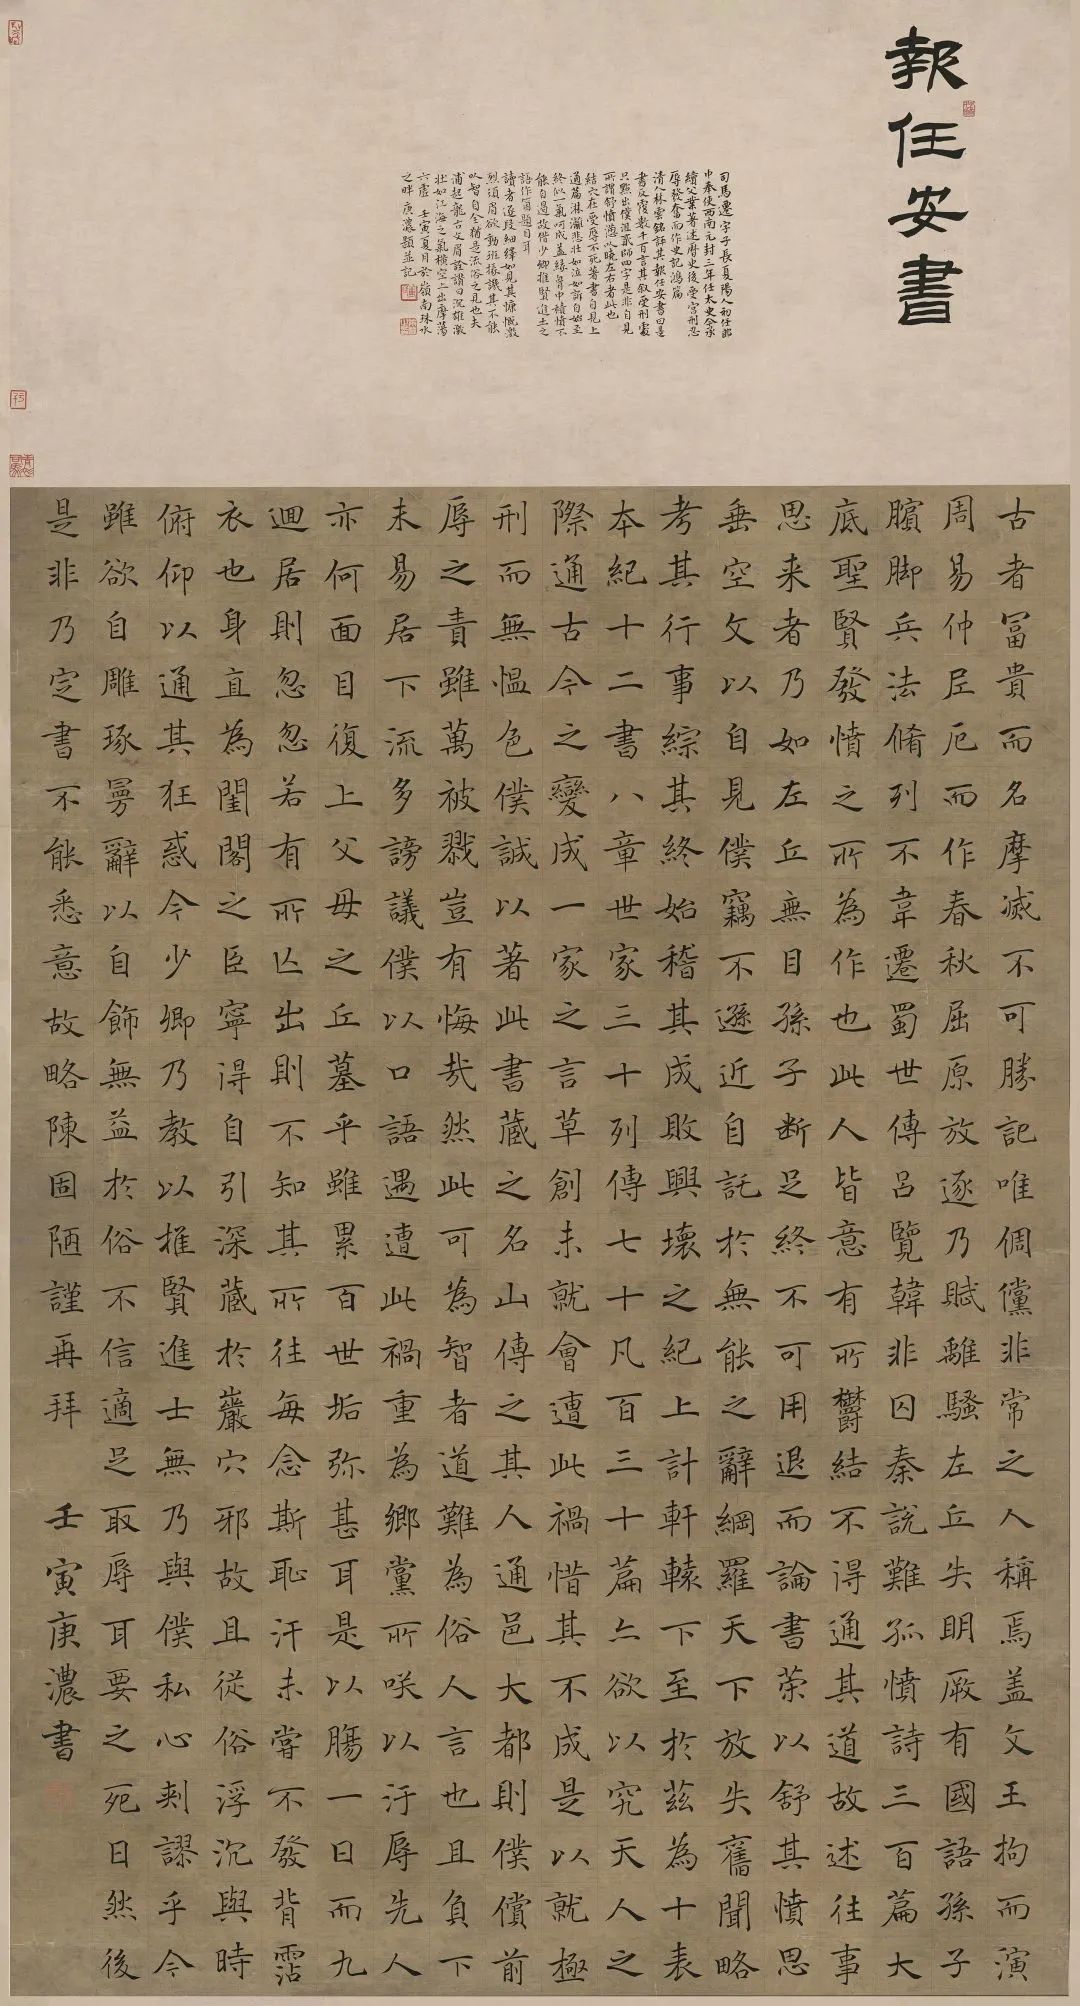 報任安書
司馬遷字子長夏陽人初任郎
中奉使西南元封三年任太史令承
續父業著述曆史後受宫刑忍
辱發奮而作史記鴻篇
清人林雲銘評其報任安書曰是
書反覆數千百言其叙受刑處
只點出僕沮貳師四字是非自見
所謂舒憤懣以曉左右者此也
結穴在受辱不死著書自見上
通篇淋灕悲壯如泣如訴自始至
終似一氣呵成蓋緣胷中積憤不
能自遏故借少卿推賢進士之
語作箇題目耳
讀者逐段細繹如見其慷慨激
烈須眉欲動班掾譏其不能
以智自全猶是流俗之見也夫
浦起龍古文眉詮謂曰沉雄激
壯如江海之氣橫空上出摩蕩
六虛 壬寅夏月於嶺南珠水
之畔庚濃題並記
古者冨貴而名摩滅不可勝記唯倜儻非常之人稱焉蓋文王拘而演
周易仲尼厄而作春秋屈原放逐乃賦離騷左丘失明厥有國語孫子
臏脚兵法脩列不韋遷蜀世傳吕覽韓非囚秦說難孤憤詩三百篇大
底聖賢發憤之所為作也此人皆意有所鬱結不得通其道故述往事
思来者乃如左丘無目孫子断足終不可用退而論書策以舒其憤思
垂空文以自見僕竊不遜近自託於無能之辭網羅天下放失舊聞略
考其行事綜其終始稽其成敗興壞之紀上計軒轅下至於茲為十表
本紀十二書八章世家三十列傳七十凡百三十篇亦欲以究天人之
際通古今之變成一家之言草創未就會遭此禍惜其不成是以就極
刑而無愠色僕誠以著此書蔵之名山傳之其人通邑大都則僕償前
辱之責雖萬被戮豈有悔哉然此可為智者道難為俗人言也且負下
未易居下流多謗議僕以口語遇遭此禍重為鄉黨所咲以汙辱先人
亦何面目復上父母之丘墓乎雖累百世垢弥甚耳是以腸一日而九
迴居則忽忽若有所亾出則不知其所往每念斯恥汗未嘗不發背霑
衣也身直為閨閤之臣寧得自引深蔵於巖穴邪故且從俗浮沉與時
俯仰以通其狂惑今少卿乃教以推賢進士無乃與僕私心剌謬乎今
雖欲自雕琢曼辭以自飾無益於俗不信適足取辱耳要之死日然後
是非乃定書不能悉意故略陳固陋謹再拜 壬寅庚濃書